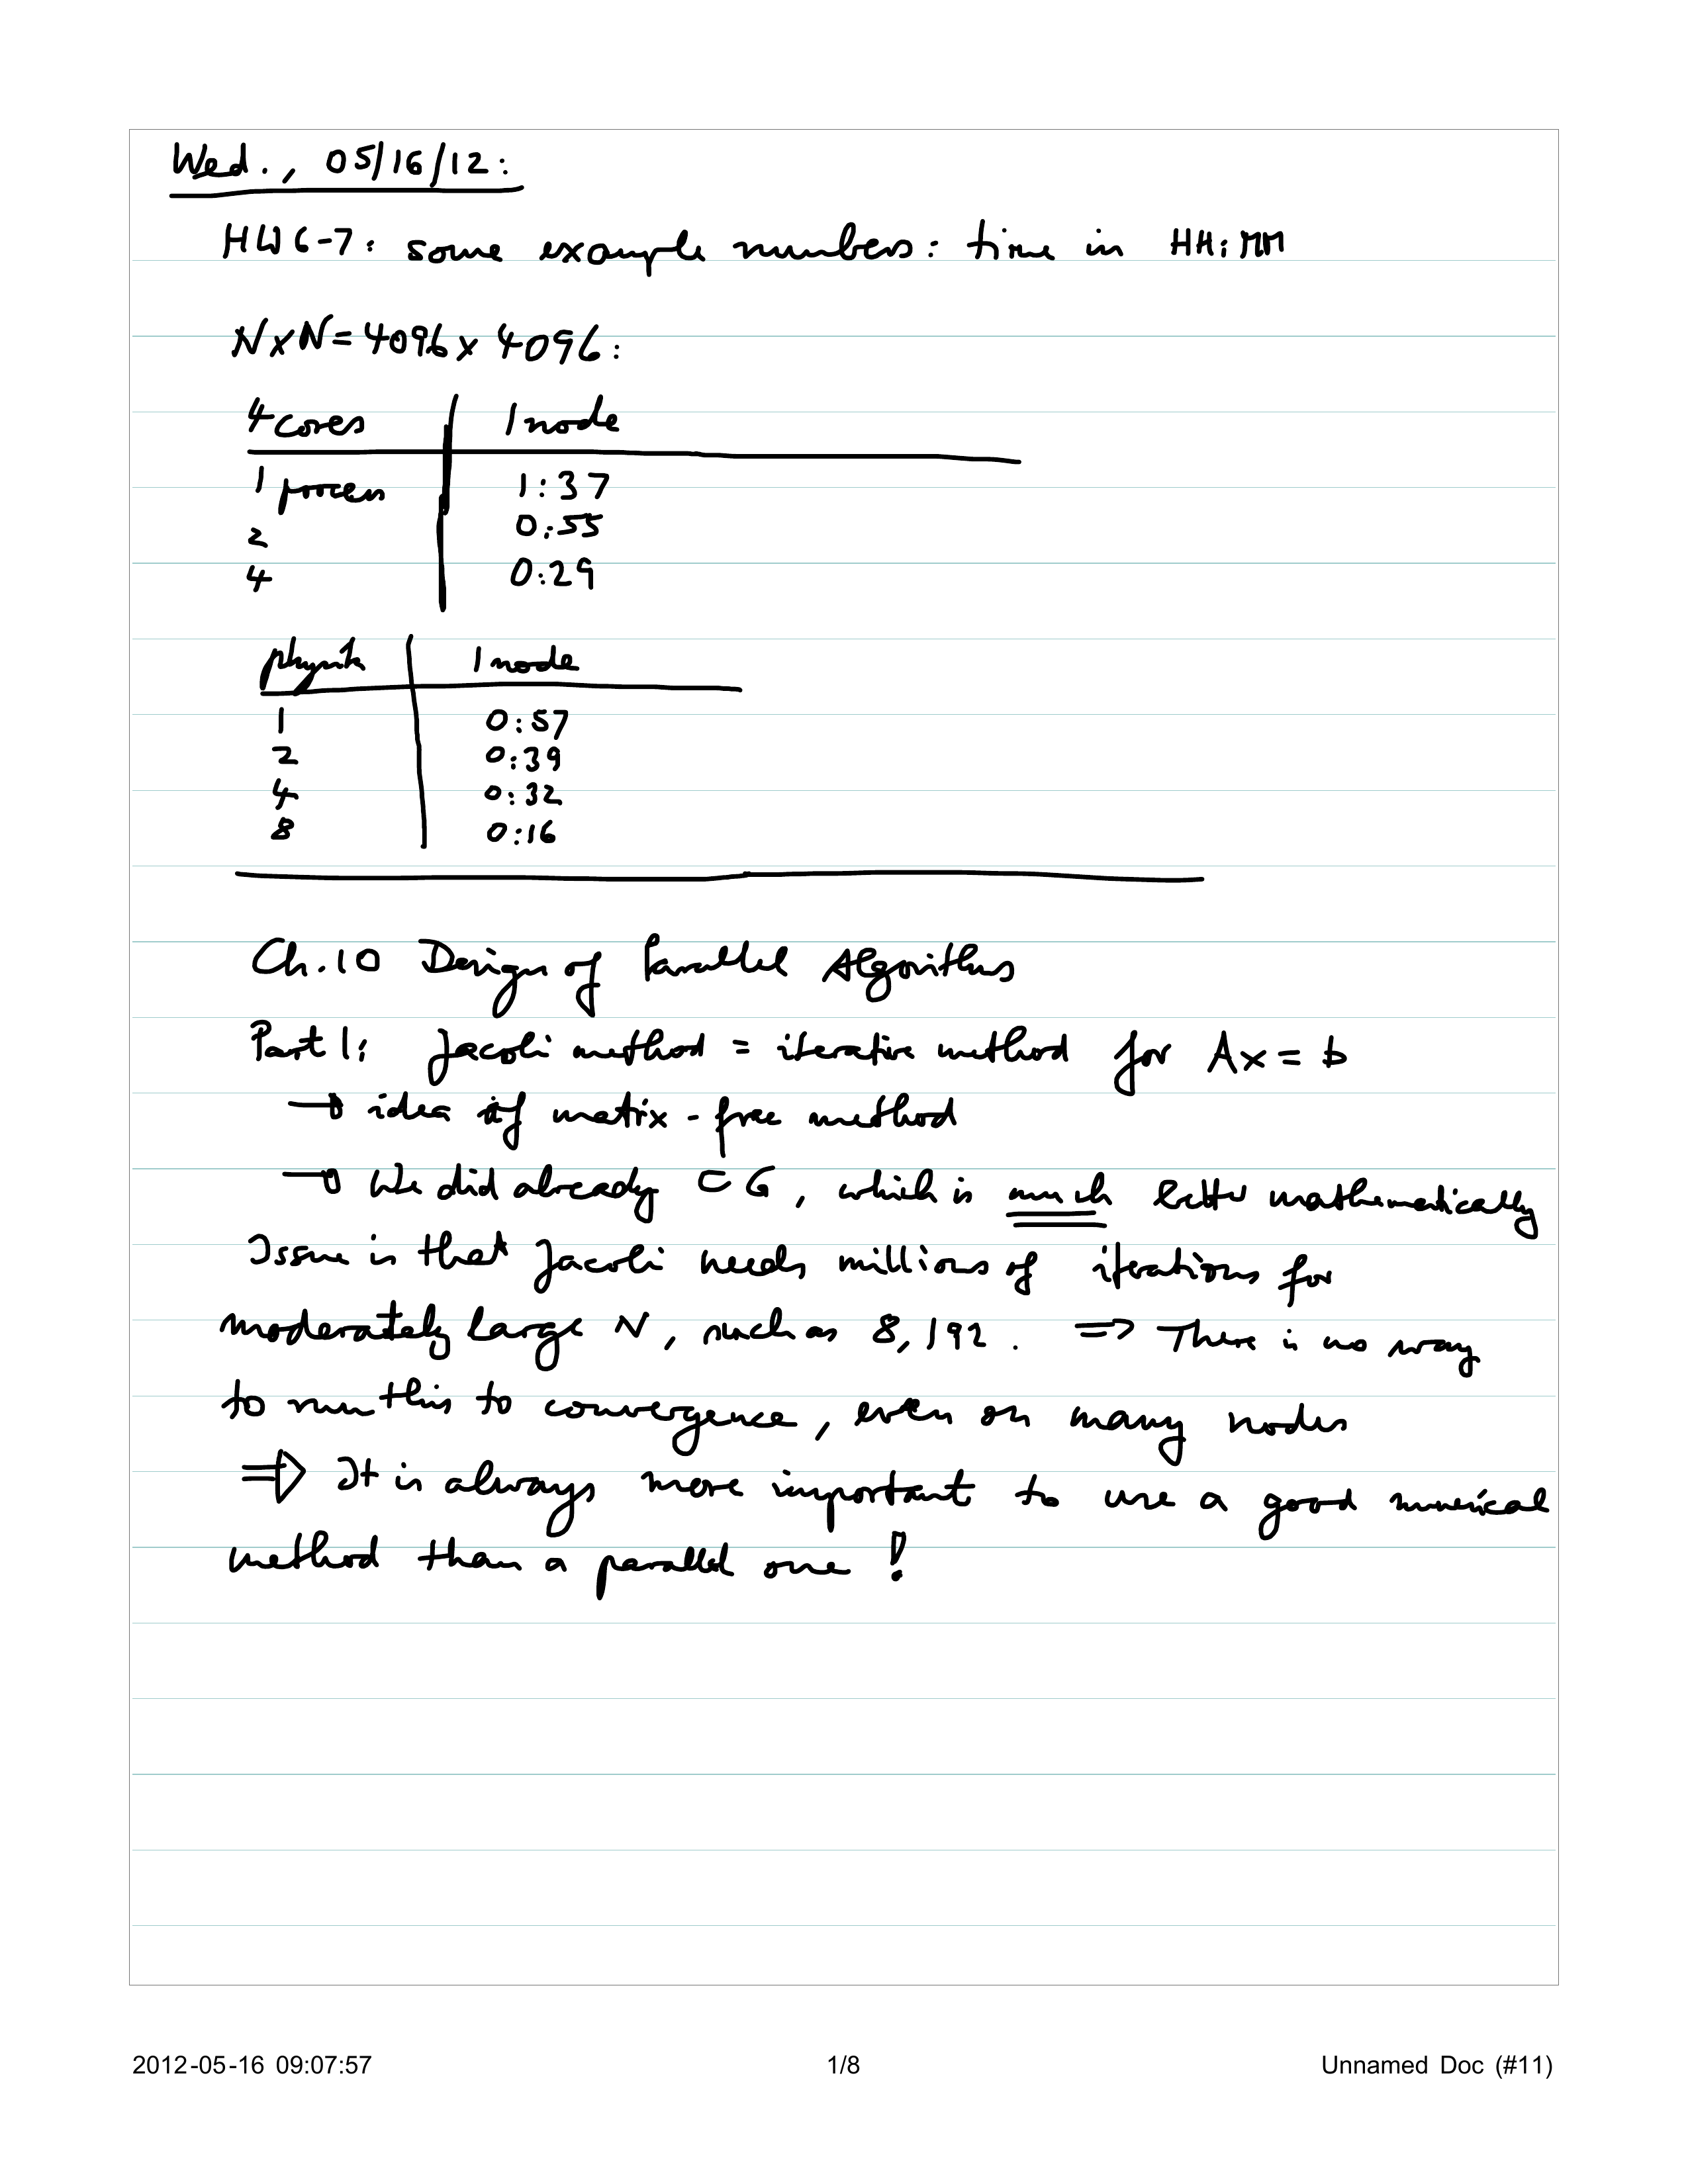 Wed., 05/16/12:
HW6-7: some example numbers: time in HH:MM
N×N=4096×4096:
4 cores 1 node
1 process 1:37
2 0:55
4 0:29
1 node
1 0:57
2 0:39
4 0:32
8 0:16
Ch.10 Design of Parallel Algorithms
Part 1: Jacobi method = iterative method for Ax = b
→ idea of matrix-free method
→ We did already CG, which is much better mathematically
Issue is that Jacobi needs millions of iterations for
moderately large N, such as 8,192. => There is no way
to run this to convergence, even on many nodes
⇒ It is always more important to use a good numerical
method than a parallel one!
2012-05-16 09:07:57 1/8 Unnamed Doc (#11)